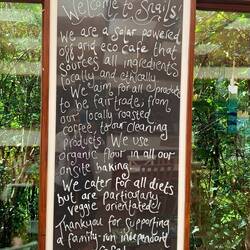 Welcome to Snails!
We are a solar powered
off grid eco cafe that
sources all ingredients
locally and ethically.
We aim for all products
to be fairtrade, from
our locally roasted
coffee, to our cleaning
products. We use
organic flour in all our
onsite baking.
We cater for all diets
but are particularly
veggie orientated!
Thankyou for supporting
a family-run independent